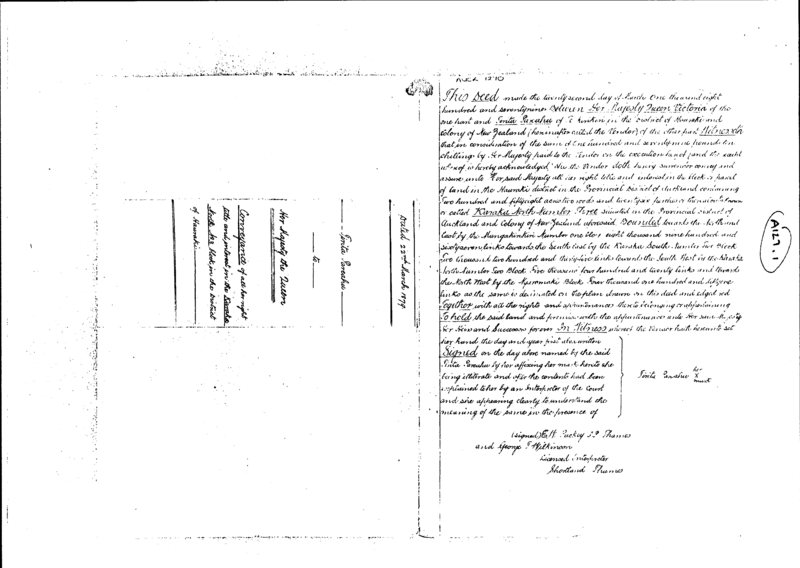 AUCK 1270
This Deed made the twenty second day of March One thousand eight
hundred and seventynine Between Her Majesty Queen Victoria of the
one part and of in the District of Hauraki and
Colony of New Zealand (hereinafter called the Vendor) of the other part Witnesseth
that in consideration of the sum of One hundred and seventy nine pounds ten
shillings by Her Majesty paid to the Vendor on the execution hereof (and the receipt
whereof is hereby acknowledged) She the Vendor doth hereby surrender convey and
assure unto Her said Majesty all her right title and interest in the block or parcel
of land in the Hauraki district in the Provincial District of Auckland containing
Two hundred and fiftyeight acres two roods and twentysix perches or thereabouts known
or called North Number Three situated in the Provincial District of
Auckland and Colony of New Zealand aforesaid Bounded towards the North and
East by the Number one Block eight thousand nine hundred and
sixtyseven links towards the South East by the South Number Two Block
Two thousand two hundred and links towards the South West by the
North Number Two Block Five thousand four hundred and twenty links and towards
the North West by the Block Four thousand one hundred and
links as the same is delineated on the plan drawn on this deed and edged red
Together with all the rights and appurtenances thereto belonging or appertaining
To hold the said land and premises with the appurtenances unto Her said Majesty
Her Heirs and Successors for ever In Witness whereof the Vendor hath hereunto set
her hand the day and year first above written
Signed on the day above named by the said
by her affixing her mark hereto she
being illiterate and after the contents had been
explained to her by an Interpreter of the Court
and she appearing clearly to understand the
meaning of the same in the presence of
her
x
mark
(signed) E W Puckey J.P. Thames
and George T Wilkinson
Licensed Interpreter
Shortland Thames
A127.1
Dated 22nd March 1879
to
Her Majesty the Queen
Conveyance of all her right
title and interest in the
North No 3 Block in the District
of Hauraki